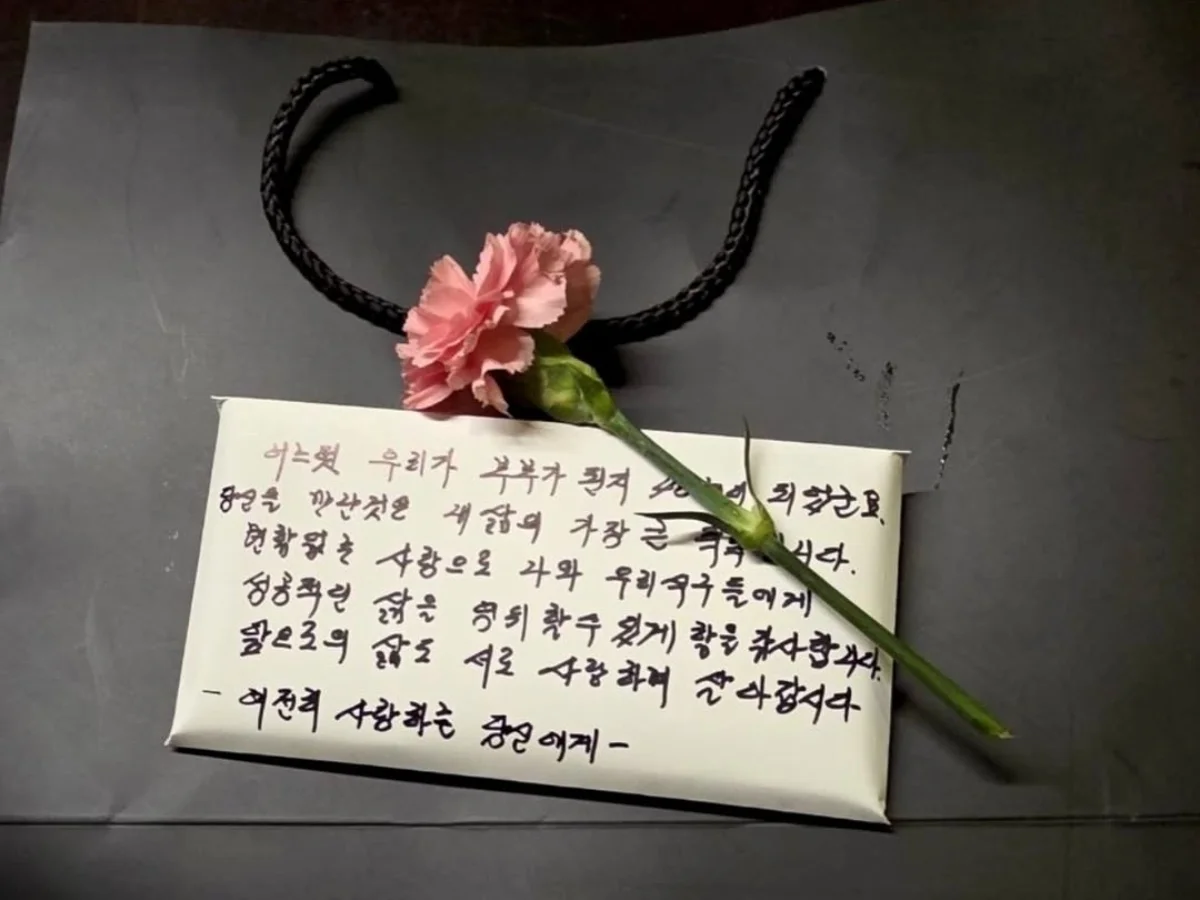 어느덧 우리가 부부가 된지 되었군요.
당신을 만난것은 내 삶의 가장 큰
변함없는 사랑으로 나와 우리식구들에게
성공적인 삶을 영위 할수 있게 함을 감사합니다.
앞으로의 삶도 서로 사랑하며 살아갑시다
- 여전히 사랑하는 당신에게 -